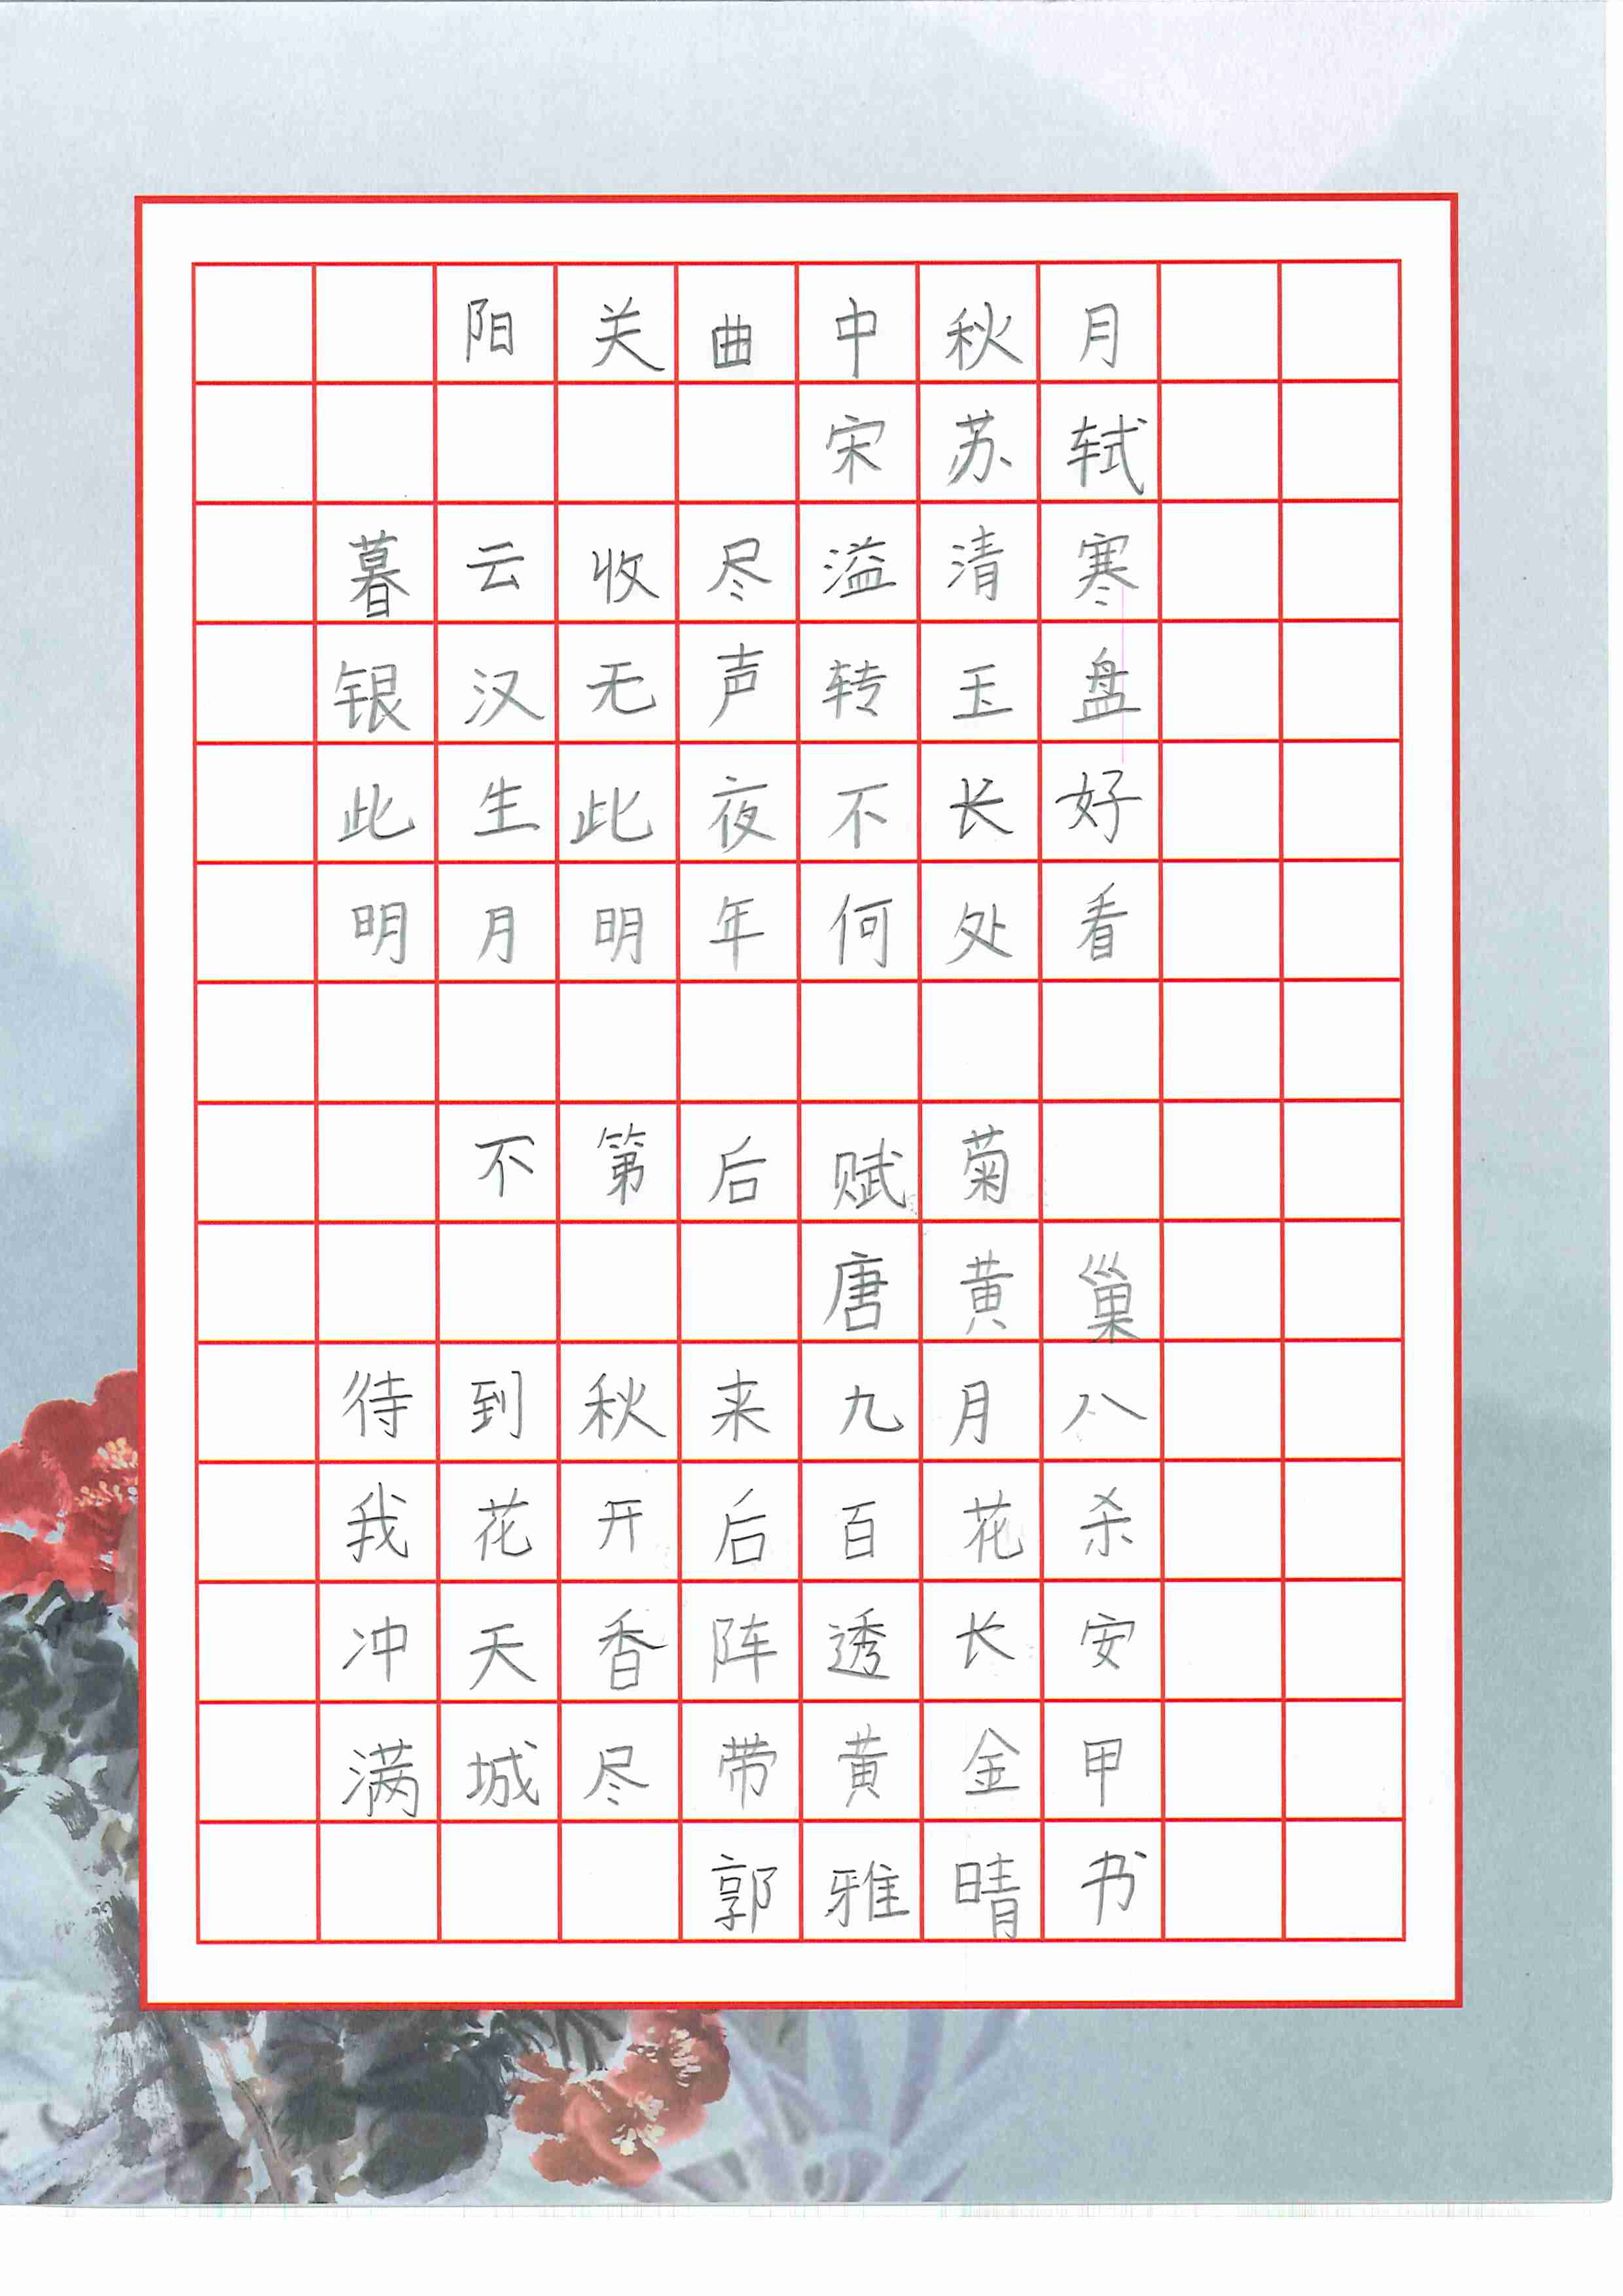 阳关曲中秋月
宋苏轼
暮云收尽溢清寒
银汉无声转玉盘
此生此夜不长好
明月明年何处看
不第后赋菊
唐黄巢
待到秋来九月八
我花开后百花杀
冲天香阵透长安
满城尽带黄金甲
郭雅晴书